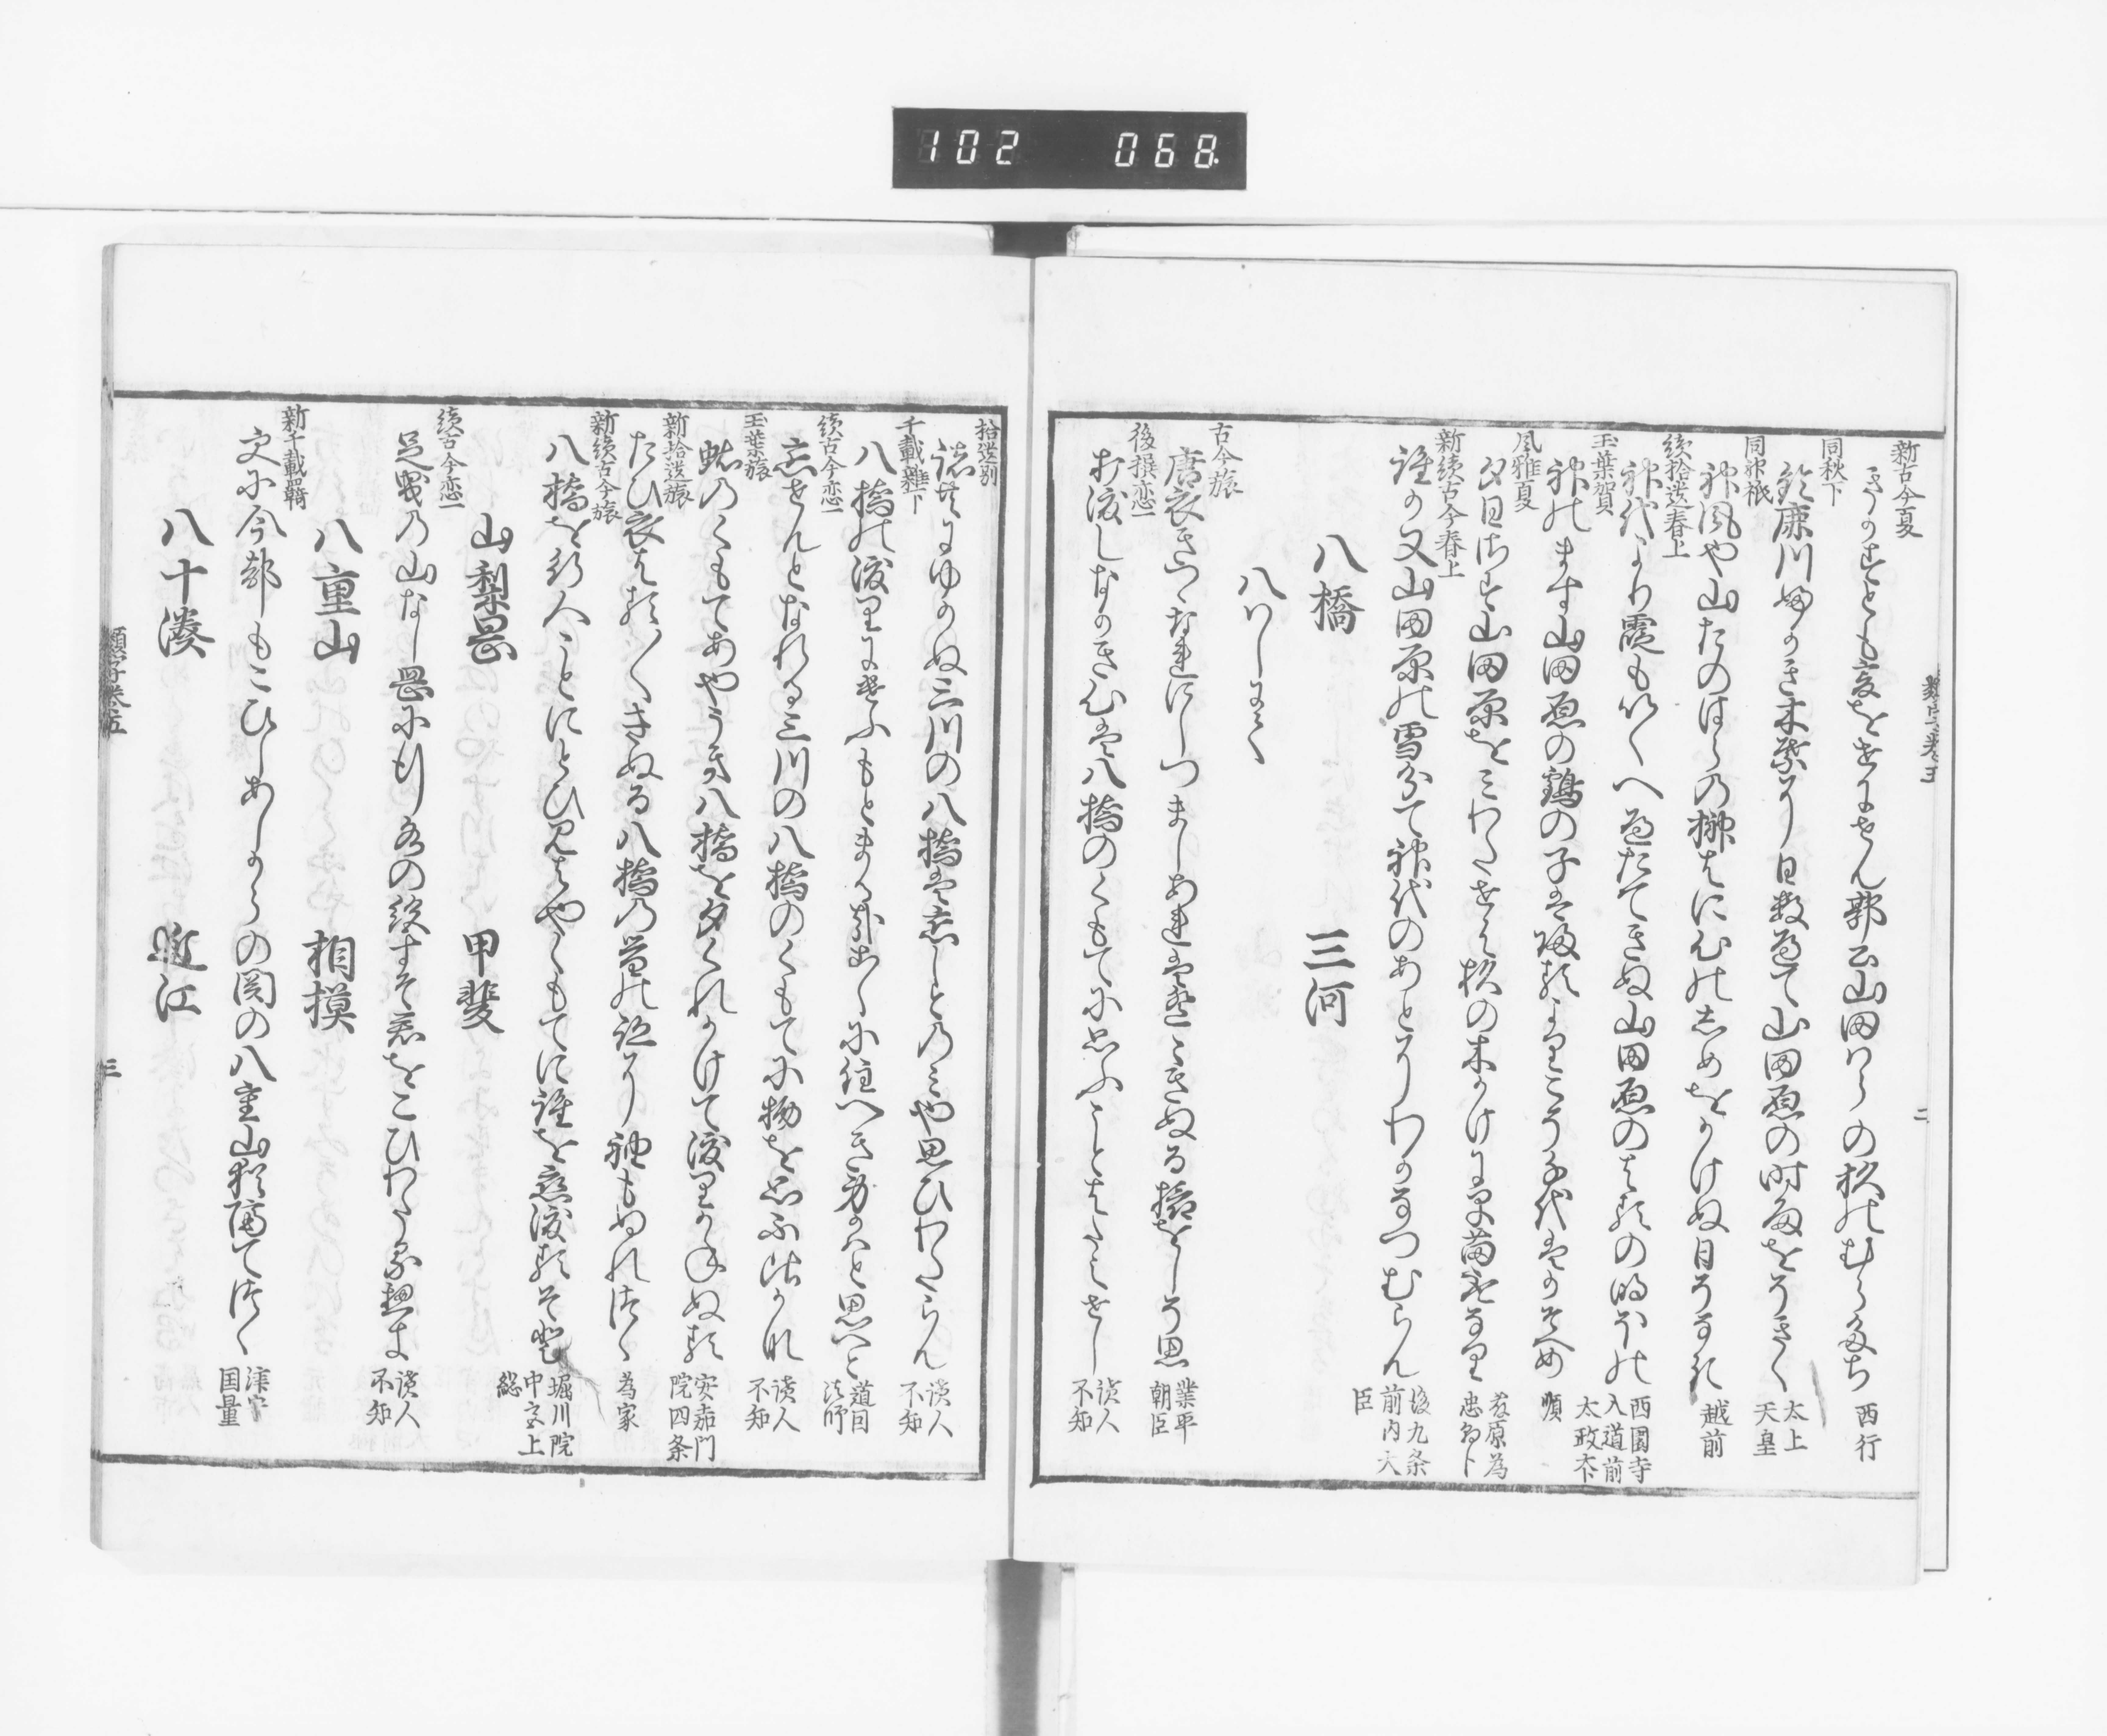 102 068
新古今夏
きかすともこゝをせにせん郭公山田はらの杉のむらたち 西行
同秋下
鈴鹿川ふかき木葉に日数へて山田の原の時雨をそきく 太上天皇
同神祇
神風や山たのはらの榊はに心のしめをかけぬ日そなき 越前
続拾遺春上
神代より霞もいくへへたてきぬ山田の原のはるの明ほの 西園寺入道前太政大
玉葉賀
神のます山田の原の鶴の子は 順
風雅夏
夕日さす山田の原をみわたせは杉の木かけに早苗とるなり 藤原為忠朝臣
新続古今春上
誰か又山田原の雪分て神代のあとにわかなつむらん 後九条前内大臣
八橋 三河
八はしにて
古今旅
唐衣きつゝなれにしつましあれははる〳〵きぬる旅をしそ思 業平朝臣
後撰恋一
打渡しなかき心は八橋のくもてに思ふことはたえせし 読人不知
拾遺別
三川の八橋は恋しとのみや思ひわたらん 読人不知
千載雑下
八橋の渡りにけふもとまるかなこゝに住へき身かはと思へと 道因法師
続古今恋一
恋せんとなれる三川の八橋のくもてに物を思ふ比かな 読人不知
玉葉旅
蛛のくもてあやうき八橋を夕くれかけて渡りかねぬる 安嘉門院四条
新拾遺旅
たひ衣はる〳〵きぬる八橋の昔の跡に袖もぬれつゝ 為家
新続古今旅
八橋を行人ことにとひ見はやくもてに誰を恋渡るそと 堀川院中宮上総
山梨岡 甲斐
続古今恋一
足曳の山なし岡に行水の絶すそ君をこひわたるへき 読人不知
八重山 相摸
新千載羇
文に今都もこひしあしからの関の八重山猶隔てつゝ 津守国量
八十湊 近江
類字巻五
二
三